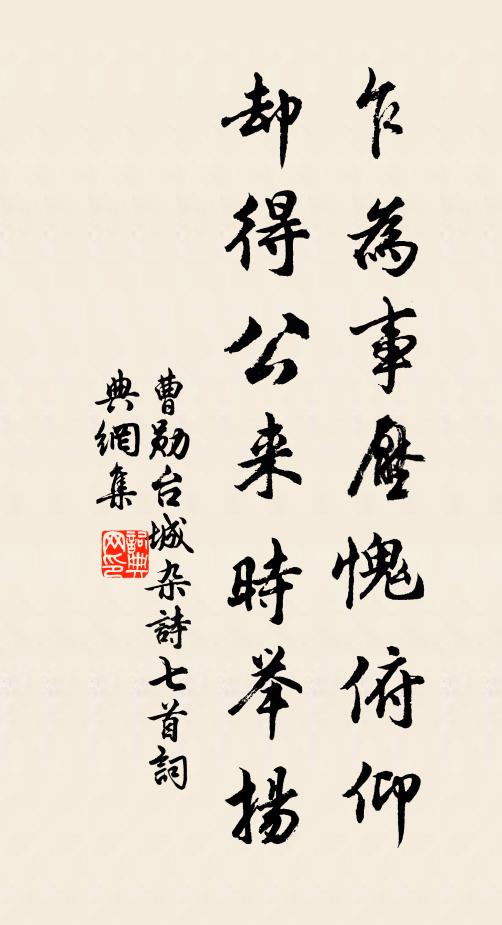 乍為事壓愧俯仰
却得公来時举揚
曹勛台城杂詩七首詞
典網集
詞典
网印